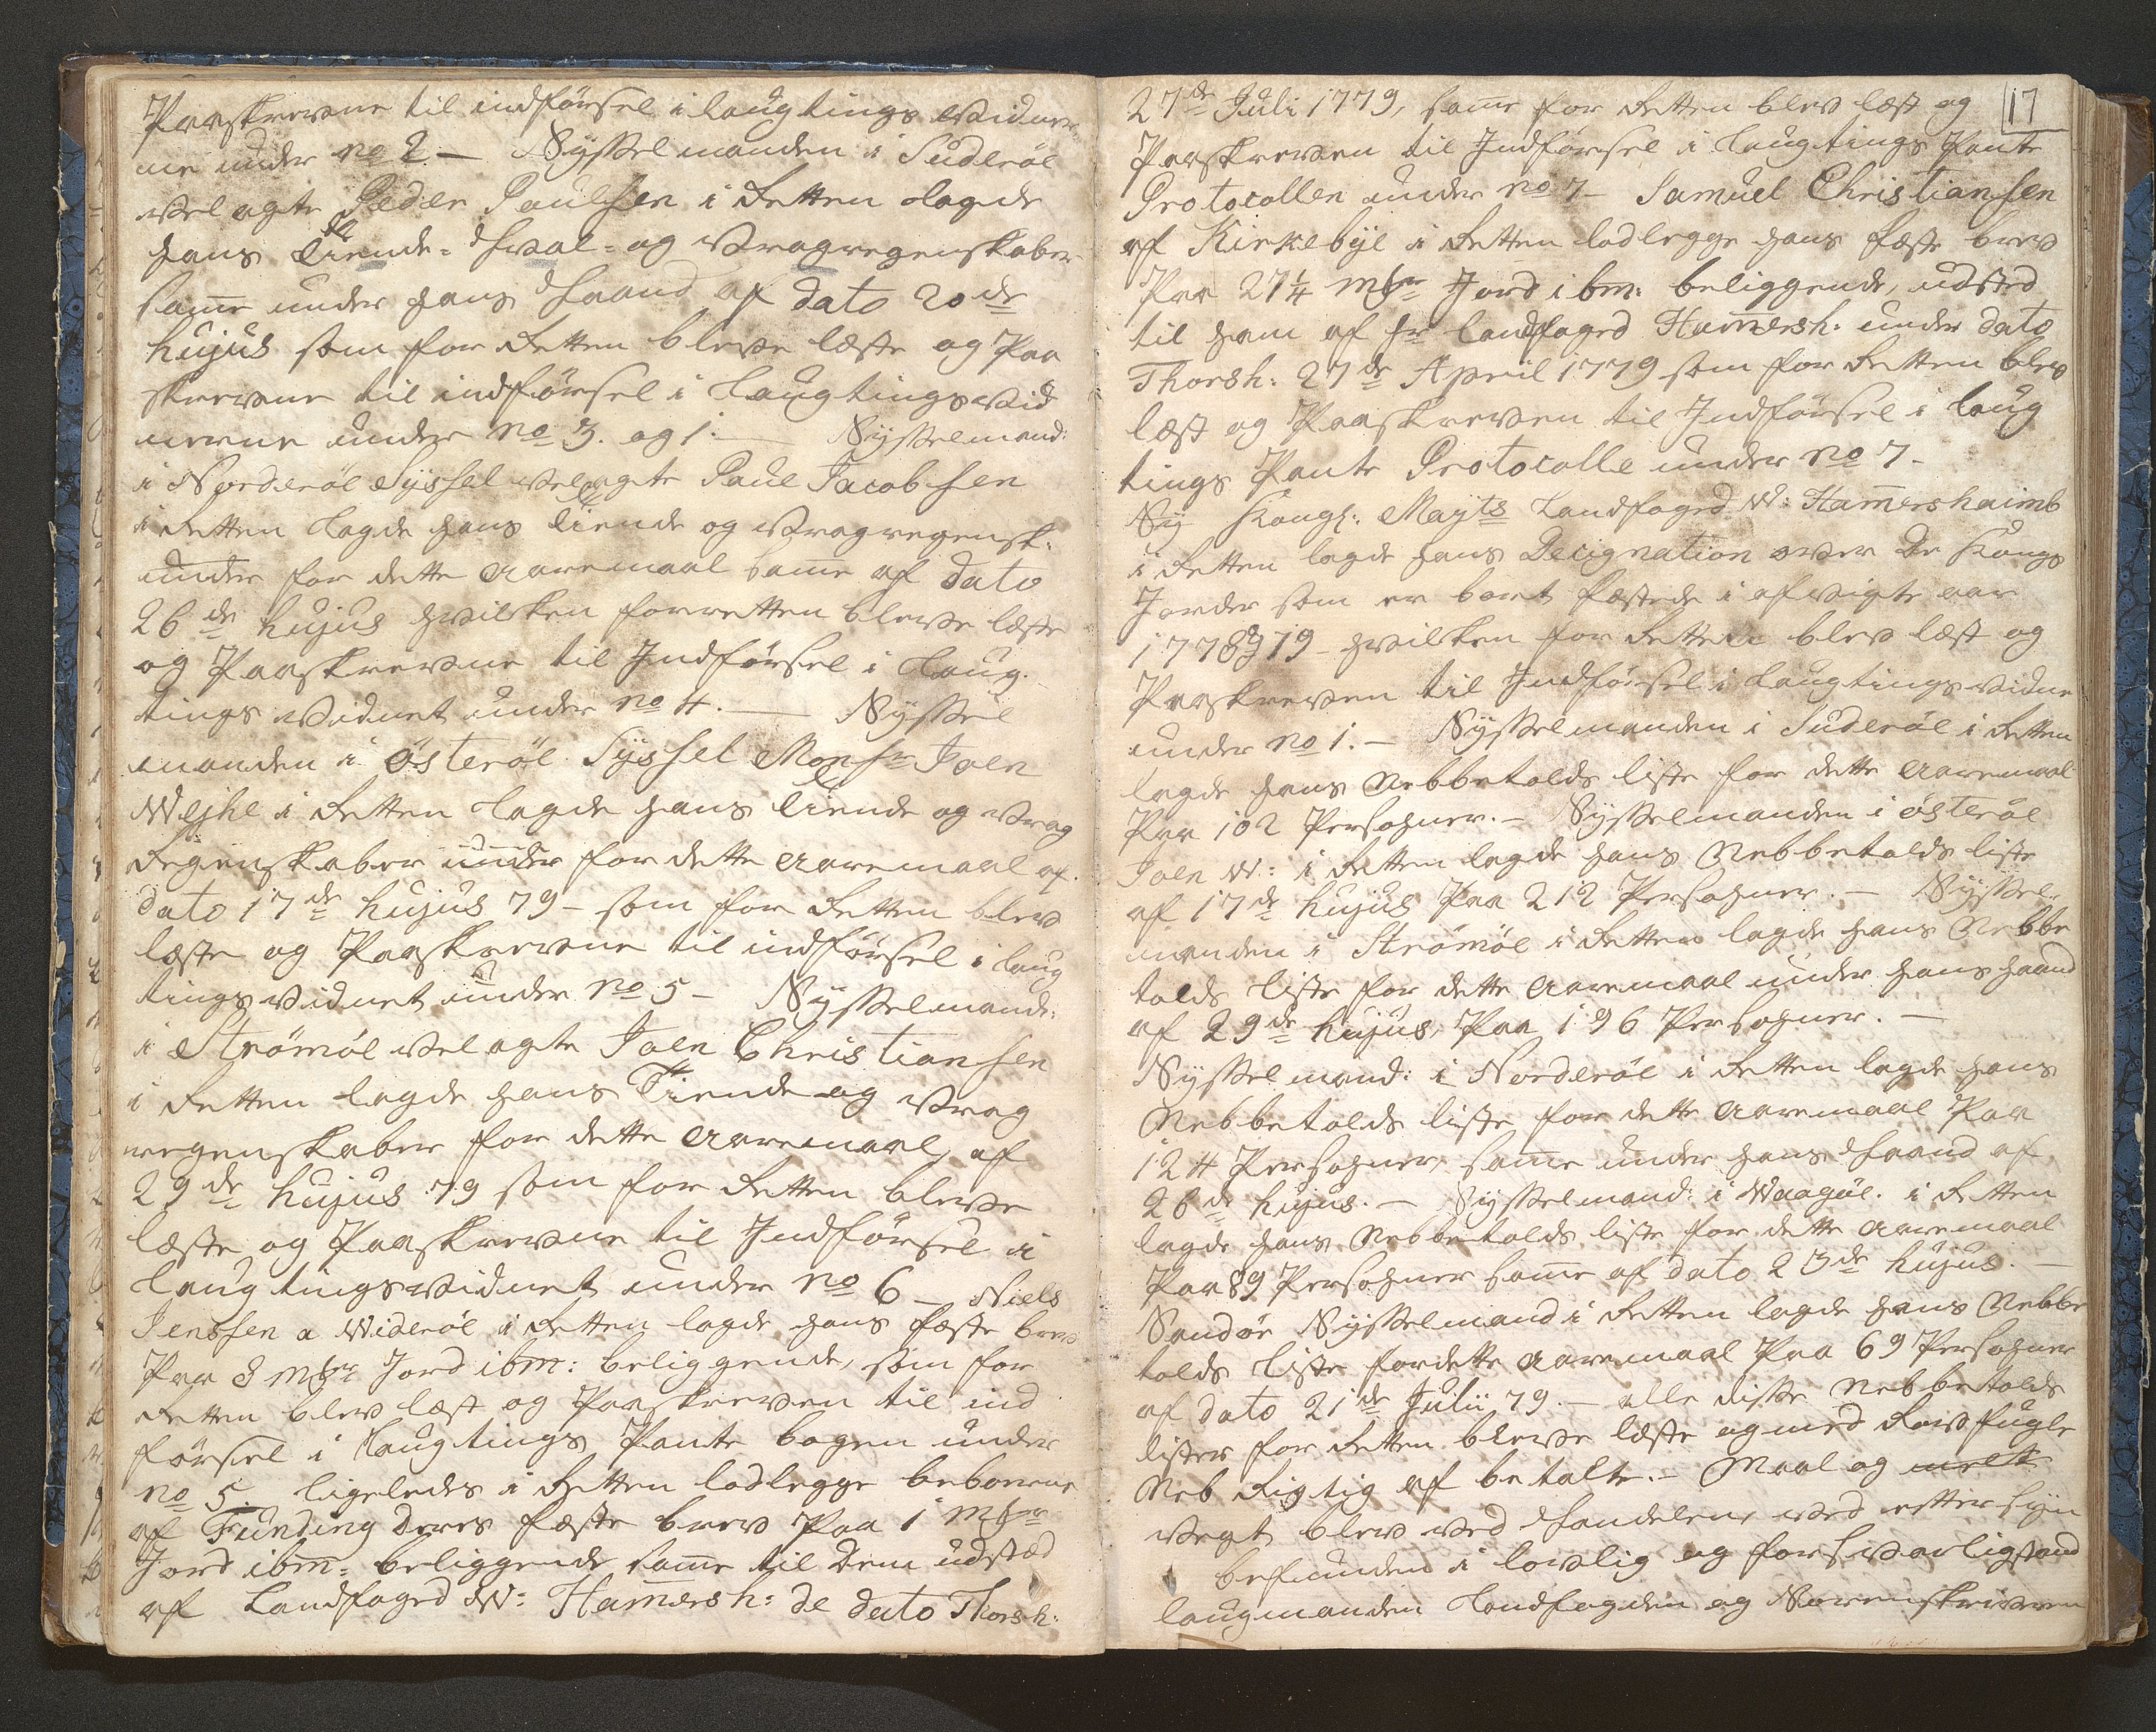 Paaskrevne til indförsel i laugtings Vidner-
ne under no 2. — Sysselmanden i Suderöe
Velagte Peder Paulsen i Retten lagde
hans Tiende- Hval- og Vragregenskaber
samme under hans Haand af dato 20de
hujus som for Retten bleve læste og Paa
skrevne til indförsel i Laugtingsvid
nerne under no 3. og 1. — Sysselmand:
i Norderöe Syssel velagte Paul Jacobsen
i Retten lagde hans Tiende og Vragregensk:
under for dette Aaremaal samme af dato
26de hujus hvilken forretten bleve læste
og Paaskrevne til Indförsel i Laug-
tings Vidnet under no 4. — Syssel
manden i Österöe Syssel Monsr Joen
Wejhe i Retten lagde hans Tiende og Vrag
Regenskaber under for dette Aaremaal af
dato 17de hujus 79 – som for Retten blev
læste og Paaskrevne til indförsel i laug
tingsvidnet under no 5 – Sysselmand:
i Strömöe velagte Joen Christiansen
i Retten lagde hans Tiende og Vrag
regenskaber for dette Aaremaal, af
29de hujus 79 som for Retten bleve
læste og Paaskrevne til Indförsel i
Laugtingsvidnet under no 6 – Niels
Jenssen a Wideröe i Retten lagde hans fæste brev
Paa 8 mkr Jord ibm: beliggende, som for
Retten blev læst og Paaskreven til ind
försel i Laugtings Pante bogen under
no 5 ligeledes i Retten lodlegge beboerne
af Funding deres fæste brev Paa 1 mkr
Jord ibm: beliggende samme til dem udstæd
af Landfoged W: Hamersh: de dato Thorsh:
17
27de Juli 1779, samme for Retten blev læst og
Paaskreven til Indförsel i Laugtings Pante
Protocollen under no 7 – Samuel Christiansen
af Kirkebÿe i Retten lodlegge hans fæste brev
Paa 27¼ mkr Jord ibm: beliggende, udsted
til ham af Hr Landfoged Hamersh: under dato
Thorsh: 27de April 1779 som for Retten blev
læst og Paaskreven til Indförsel i laug
tings Pante Protocolle under no 7 –
Ny Kongl: Mayts Landfoged W: Hamershaimb
i Retten lagde hans Decignation over De Kongs
Jorder som er bort fæstede i afvigte aar
1778 79 – hvilken for Retten blev læst og
Paaskreven til Indförsel i Laugtingsvidne
under no 1. – Sysselmanden i Suderöe i Retten
lagde hans Nebbetolds liste for dette Aaremaal
Paa 102 Persohner. – Sysselmanden i Österöe
Joen W: i Retten lagde hans Nebbetolds liste
af 17de hujus Paa 212 Persohner. – Syssel-
manden i Strömöe i Retten lagde hans Nebbe
tolds liste for dette Aaremaal under hans haand
af 29de hujus, Paa 196 Persohner. –
Sysselmand: i Norderöe i Retten lagde hans
Nebbetolds liste for dette Aaremaal Paa
124 Persohner, samme under hans Haand af
26de hujus. – Sysselmand: i Waagöe. i Retten
lagde hans Nebbetolds liste for dette Aaremaal
Paa 89 Persohner samme af dato 23de hujus. –
Sandöe Sysselmand i Retten lagde hans Nebbe
tolds liste fordette Aaremaal Paa 69 Persohner
af dato 21de Julii 79. – alle disse Nebbetolds
lister for Retten bleve læste og med Rovfugle
Neb Rigtig af betalte. – Maal og
Vegt blev ved Handelen, ved eftersyn
befunden i lovlig og forsvarligstand
laugmanden Landfogden og Sorenskriveren